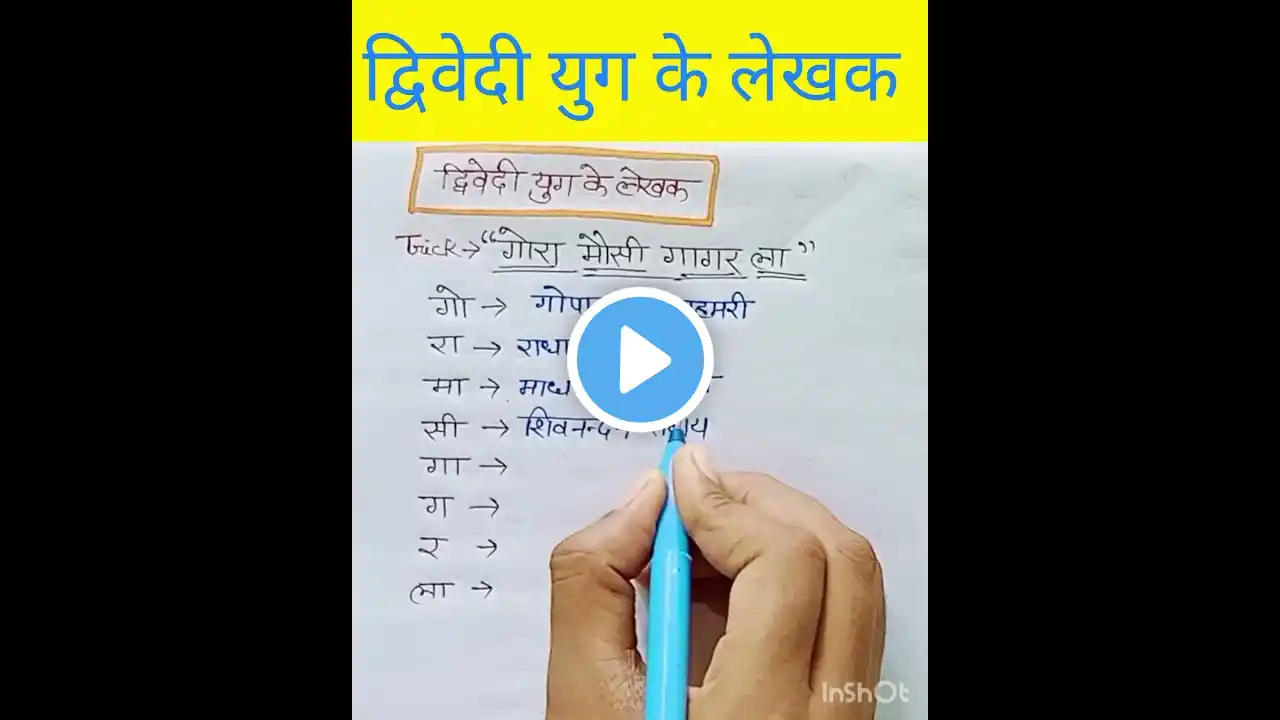 द्विवेदी युग के लेखक
द्विवेदी युग के लेखक
Trick→ "गोरा मौसी गागर ला"
गो →
रा →
मा →
सी → शिवनन्दन सहाय
गा →
ग →
र →
ला →
InShOt